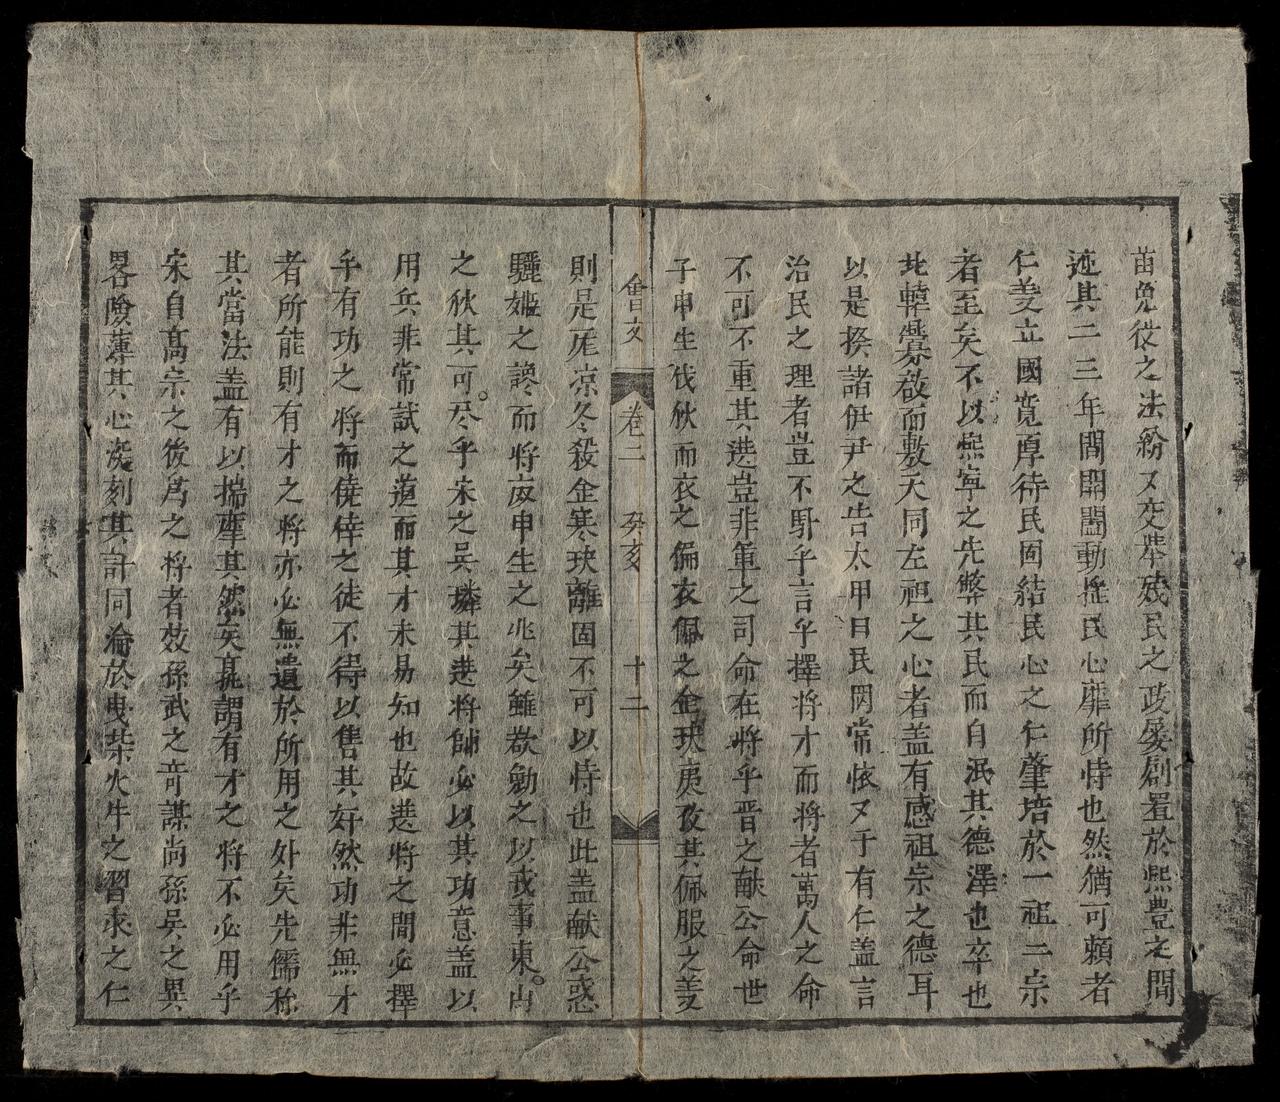 苗免役之法紛又交舉殘民之政屡剏置於熙豊之間
迹其二三年間開闔動搖民心靡所恃也然猶可頼者
仁義立國寛厚待民固結民心之仁肇培於一祖二宗
者至矣不以熙寧之先弊其民而自泯其德澤也卒也
北轅釁啟而敷天同左袒之心者盖有感祖宗之德耳
以是揆諸伊尹之告太甲曰民罔常懐又于有仁盖言
治民之理者豈不馭乎言乎擇将才而将者萬人之命
不可不重其選豈非軍之司命在將乎晋之献公命世
子申生伐狄而衣之偏衣佩之金玦庚孜其佩服之義
會文
卷二
癸亥
十二
則是厖凉冬殺金寒玦離固不可以恃也此盖献公惑
驪姬之讒而將废申生之兆矣雖欲勉之以戎事東山
之狄其可尽乎宋之吴璘其選将帥必以其功意盖以
用兵非常試之道而其才未易知也故選將之間必擇
乎有功之將而僥倖之徒不得以售其奸然功非無才
者所能則有才之將亦必無遺於所用之外矣先儒称
其當法盖有以揣摩其然矣孰謂有才之將不必用乎
宋自髙宗之後爲之将者效孫武之竒謀尚孫吴之異
畧險薄其心㳺刻其計同淪於曳柴火牛之習求之仁